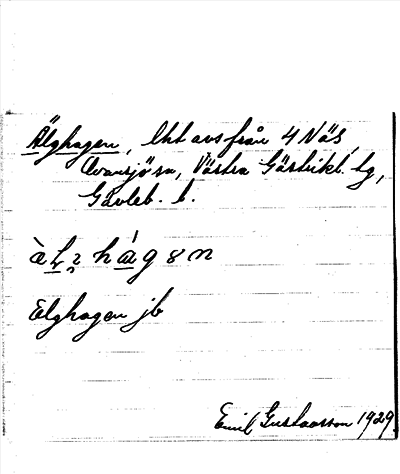 Älghagen, lht avs från 4 Näs,
Ovansjö sn, Västra Gästrikl. tg,
Gävleb. l.
Elghagen jb
Emil Gustavsson 1929.